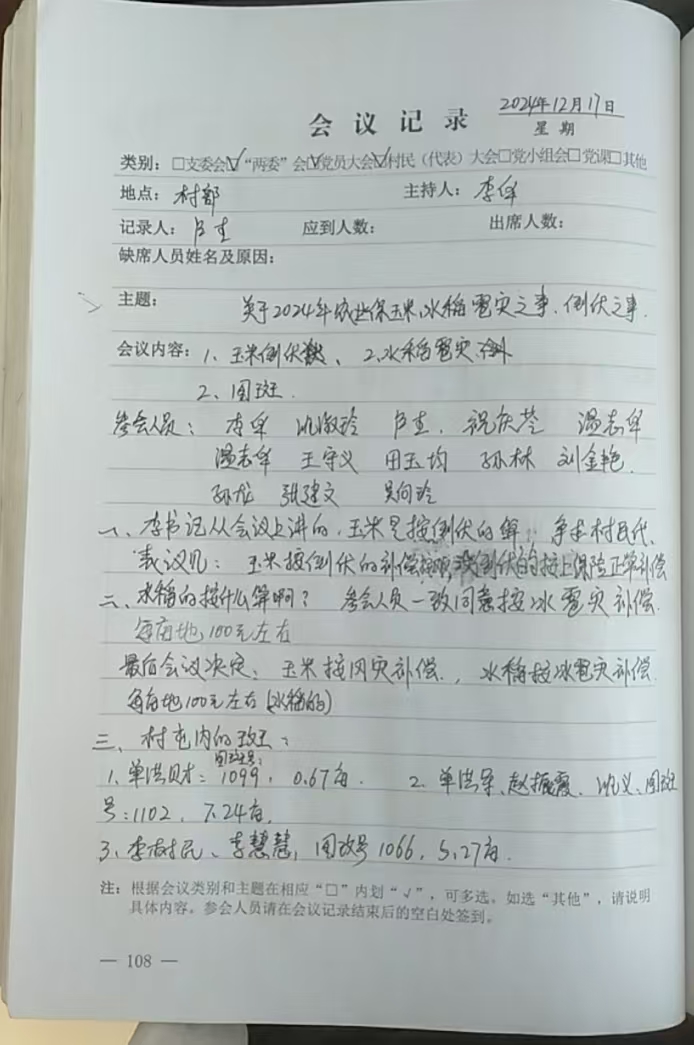 2024年12月17日
会议记录 星期
类别：□支委会☑“两委”会☑党员大会☑村民（代表）大会□党小组会□党课□其他
地点：村部 主持人：李伟
记录人：卢杰 应到人数： 出席人数：
缺席人员姓名及原因：
主题：关于2024年农业保玉米、水稻雹灾之事、倒伏之事.
会议内容：1、玉米倒伏 、2、水稻雹灾
2、图斑.
参会人员：李伟 淑玲 卢杰. 祝庆莲 温志伟
温志伟 王守义 田玉均 孙林 刘金艳.
孙龙 张建文 吴向玲
一、李书记从会议上讲的，玉米是按倒伏的算，争求村民代
表议见：玉米按倒伏的补偿 没倒伏的按上保险正常补偿
二、水稻的按什么算啊？参会人员一致同意按冰雹灾补偿.
每亩地100元左右
最后会议决定：玉米按风灾补偿.，水稻按冰雹灾补偿
每亩地100元左右（水稻的）
三、村屯内的斑：
图斑号：
1、单洪财：1099，0.67亩. 2、单洪军、赵振霞、 义、图斑
号：1102，7.24亩.
3、李树民、李慧慧，图斑号1066，5.27亩.
注：根据会议类别和主题在相应“□”内划“√”，可多选。如选“其他”，请说明
具体内容。参会人员请在会议记录结束后的空白处签到。
— 108 —